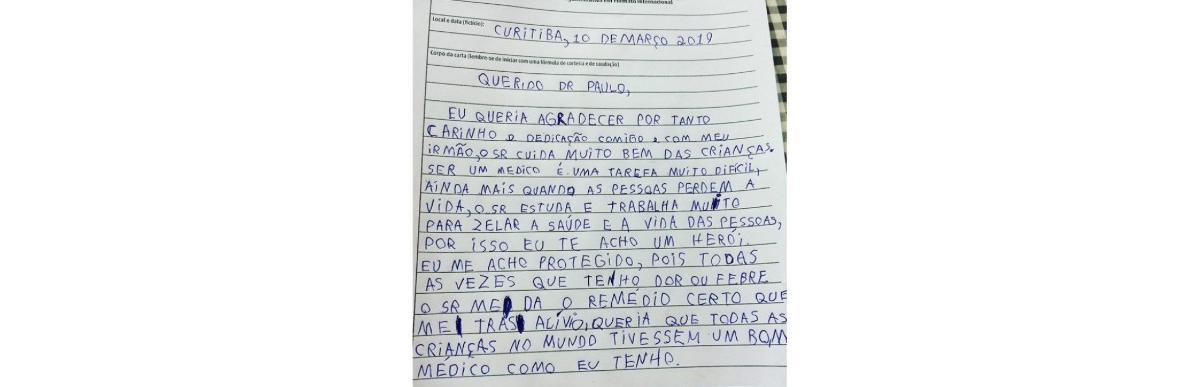 em Formato Internacional
Local e data (fictício):
CURITIBA, 10 DE MARÇO 2019
Corpo da carta (lembre-se de iniciar com uma fórmula de cortesia e de saudação)
QUERIDO DR PAULO,
EU QUERIA AGRADECER POR TANTO
CARINHO e DEDICAÇÃO COMIGO e COM MEU
IRMÃO, O SR CUIDA MUITO BEM DAS CRIANÇAS.
SER UM MEDICO É UMA TAREFA MUITO DIFÍCIL,
AINDA MAIS QUANDO AS PESSOAS PERDEM A
VIDA, O SR ESTUDA E TRABALHA MUITO
PARA ZELAR A SAÚDE E A VIDA DAS PESSOAS,
POR ISSO EU TE ACHO UM HERÓI.
EU ME ACHO PROTEGIDO, POIS TODAS
AS VEZES QUE TENHO DOR OU FEBRE
O SR ME DA O REMÉDIO CERTO QUE
ME TRÁS ALÍVIO, QUERIA QUE TODAS AS
CRIANÇAS NO MUNDO TIVESSEM UM BOM
MÉDICO COMO EU TENHO.